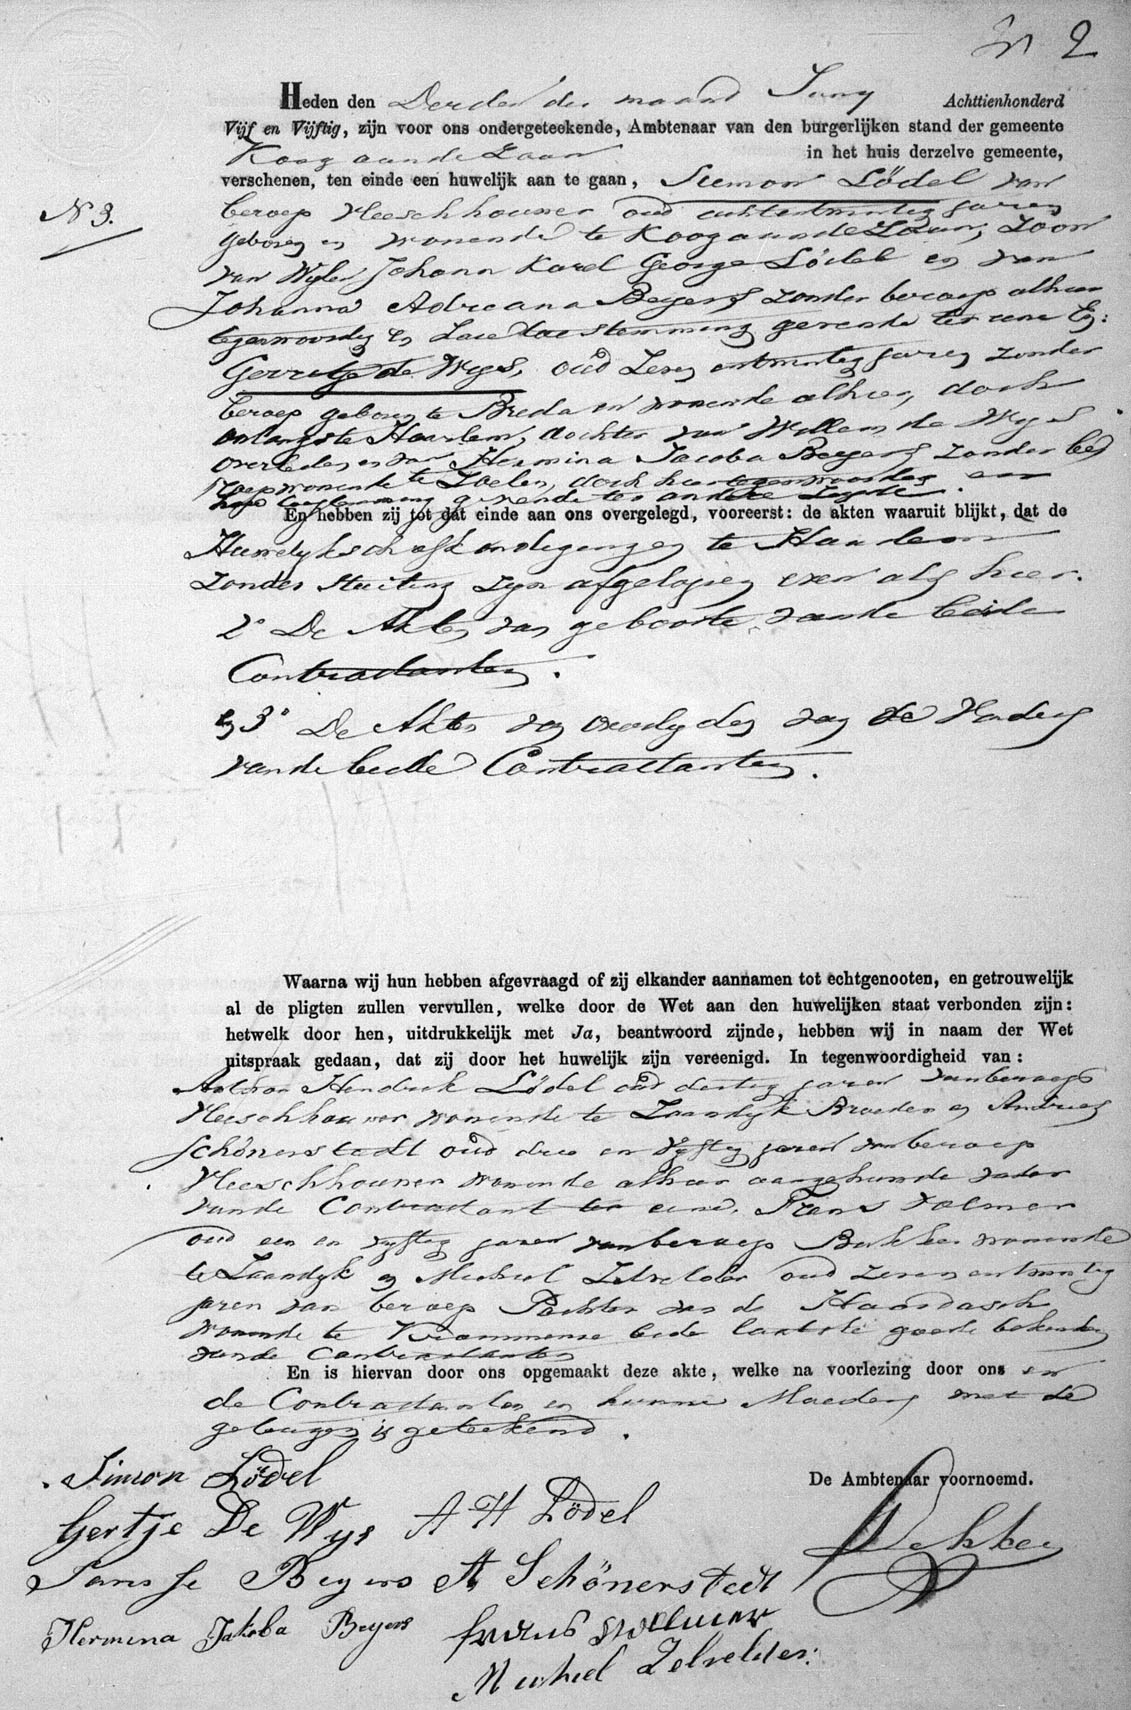 2
Heden den Derden der maand Juny Achttienhonderd
Vijf en Vijftig, zijn voor ons ondergeteekende, Ambtenaar van den burgerlijken stand der gemeente
Koog aan de Zaan in het huis derzelve gemeente,
verschenen, ten einde een huwelijk aan te gaan, Siemon Lödel van
N 3.
beroep Vleeschhouwer oud achtentwintig jaren
geboren en wonende te Koog aan de Zaan, Zoon
van Wijlen Johann Karel George Lödel en van
Johanna Adreana Beyers zonder beroep alhier
tegenwoordig en hare toestemming gevende ter eene En:
Gerretje de Wys, oud Zeven entwintig jaren zonder
beroep geboren te Breda en wonende alhier, doch
onlangs te Haarlem, dochter van Willem de Wys
overleden en van Hermina Jacoba Beyers zonder be
roep wonende te Loelen, doch hier tegenwoordig en
hare toestemming gevende ter andere Zyde
En hebben zij tot dat einde aan ons overgelegd, vooreerst: de akten waaruit blijkt, dat de
Huwelykschafkondigengen te Haarlem
zonder stuiting zyn afgelopen even als hier.
2° De Akten van geboorte van de beide
Contractanten.
en 3° De Akten van overlyden van de Vaders
van de beide Contractanten.
Waarna wij hun hebben afgevraagd of zij elkander aannamen tot echtgenooten, en getrouwelijk
al de pligten zullen vervullen, welke door de Wet aan den huwelijken staat verbonden zijn:
hetwelk door hen, uitdrukkelijk met Ja, beantwoord zijnde, hebben wij in naam der Wet
uitspraak gedaan, dat zij door het huwelijk zijn vereenigd. In tegenwoordigheid van:
Hendrik Lödel oud dertig jaren van beroep
Vleeschhouwer wonende te Zaandyk Broeder en Andries
Schönerstedt oud drie en vyftig jaren van beroep
Vleeschhouwer wonende alhier aangehuwde vader
van de Contractant ter eene, Frans Volmer
oud een en vyftig jaren van beroep Bakker wonende
te Zaandyk en Michiel Zelvelder oud zeven entwintig
jaren van beroep Pachter van de
wonende te Krommenie beide laatste goede bekenden
van de Contractanten
En is hiervan door ons opgemaakt deze akte, welke na voorlezing door ons en
de Contractanten en hunne Moeders met de
getuigen is geteekend.
Simon Lödel
De Ambtenaar voornoemd.
Gertje De Wys A H Lödel
Jansje Beyers A Schönerstedt
Hermina Jakoba Beyers frans vollmer
Michiel Zelvelder.